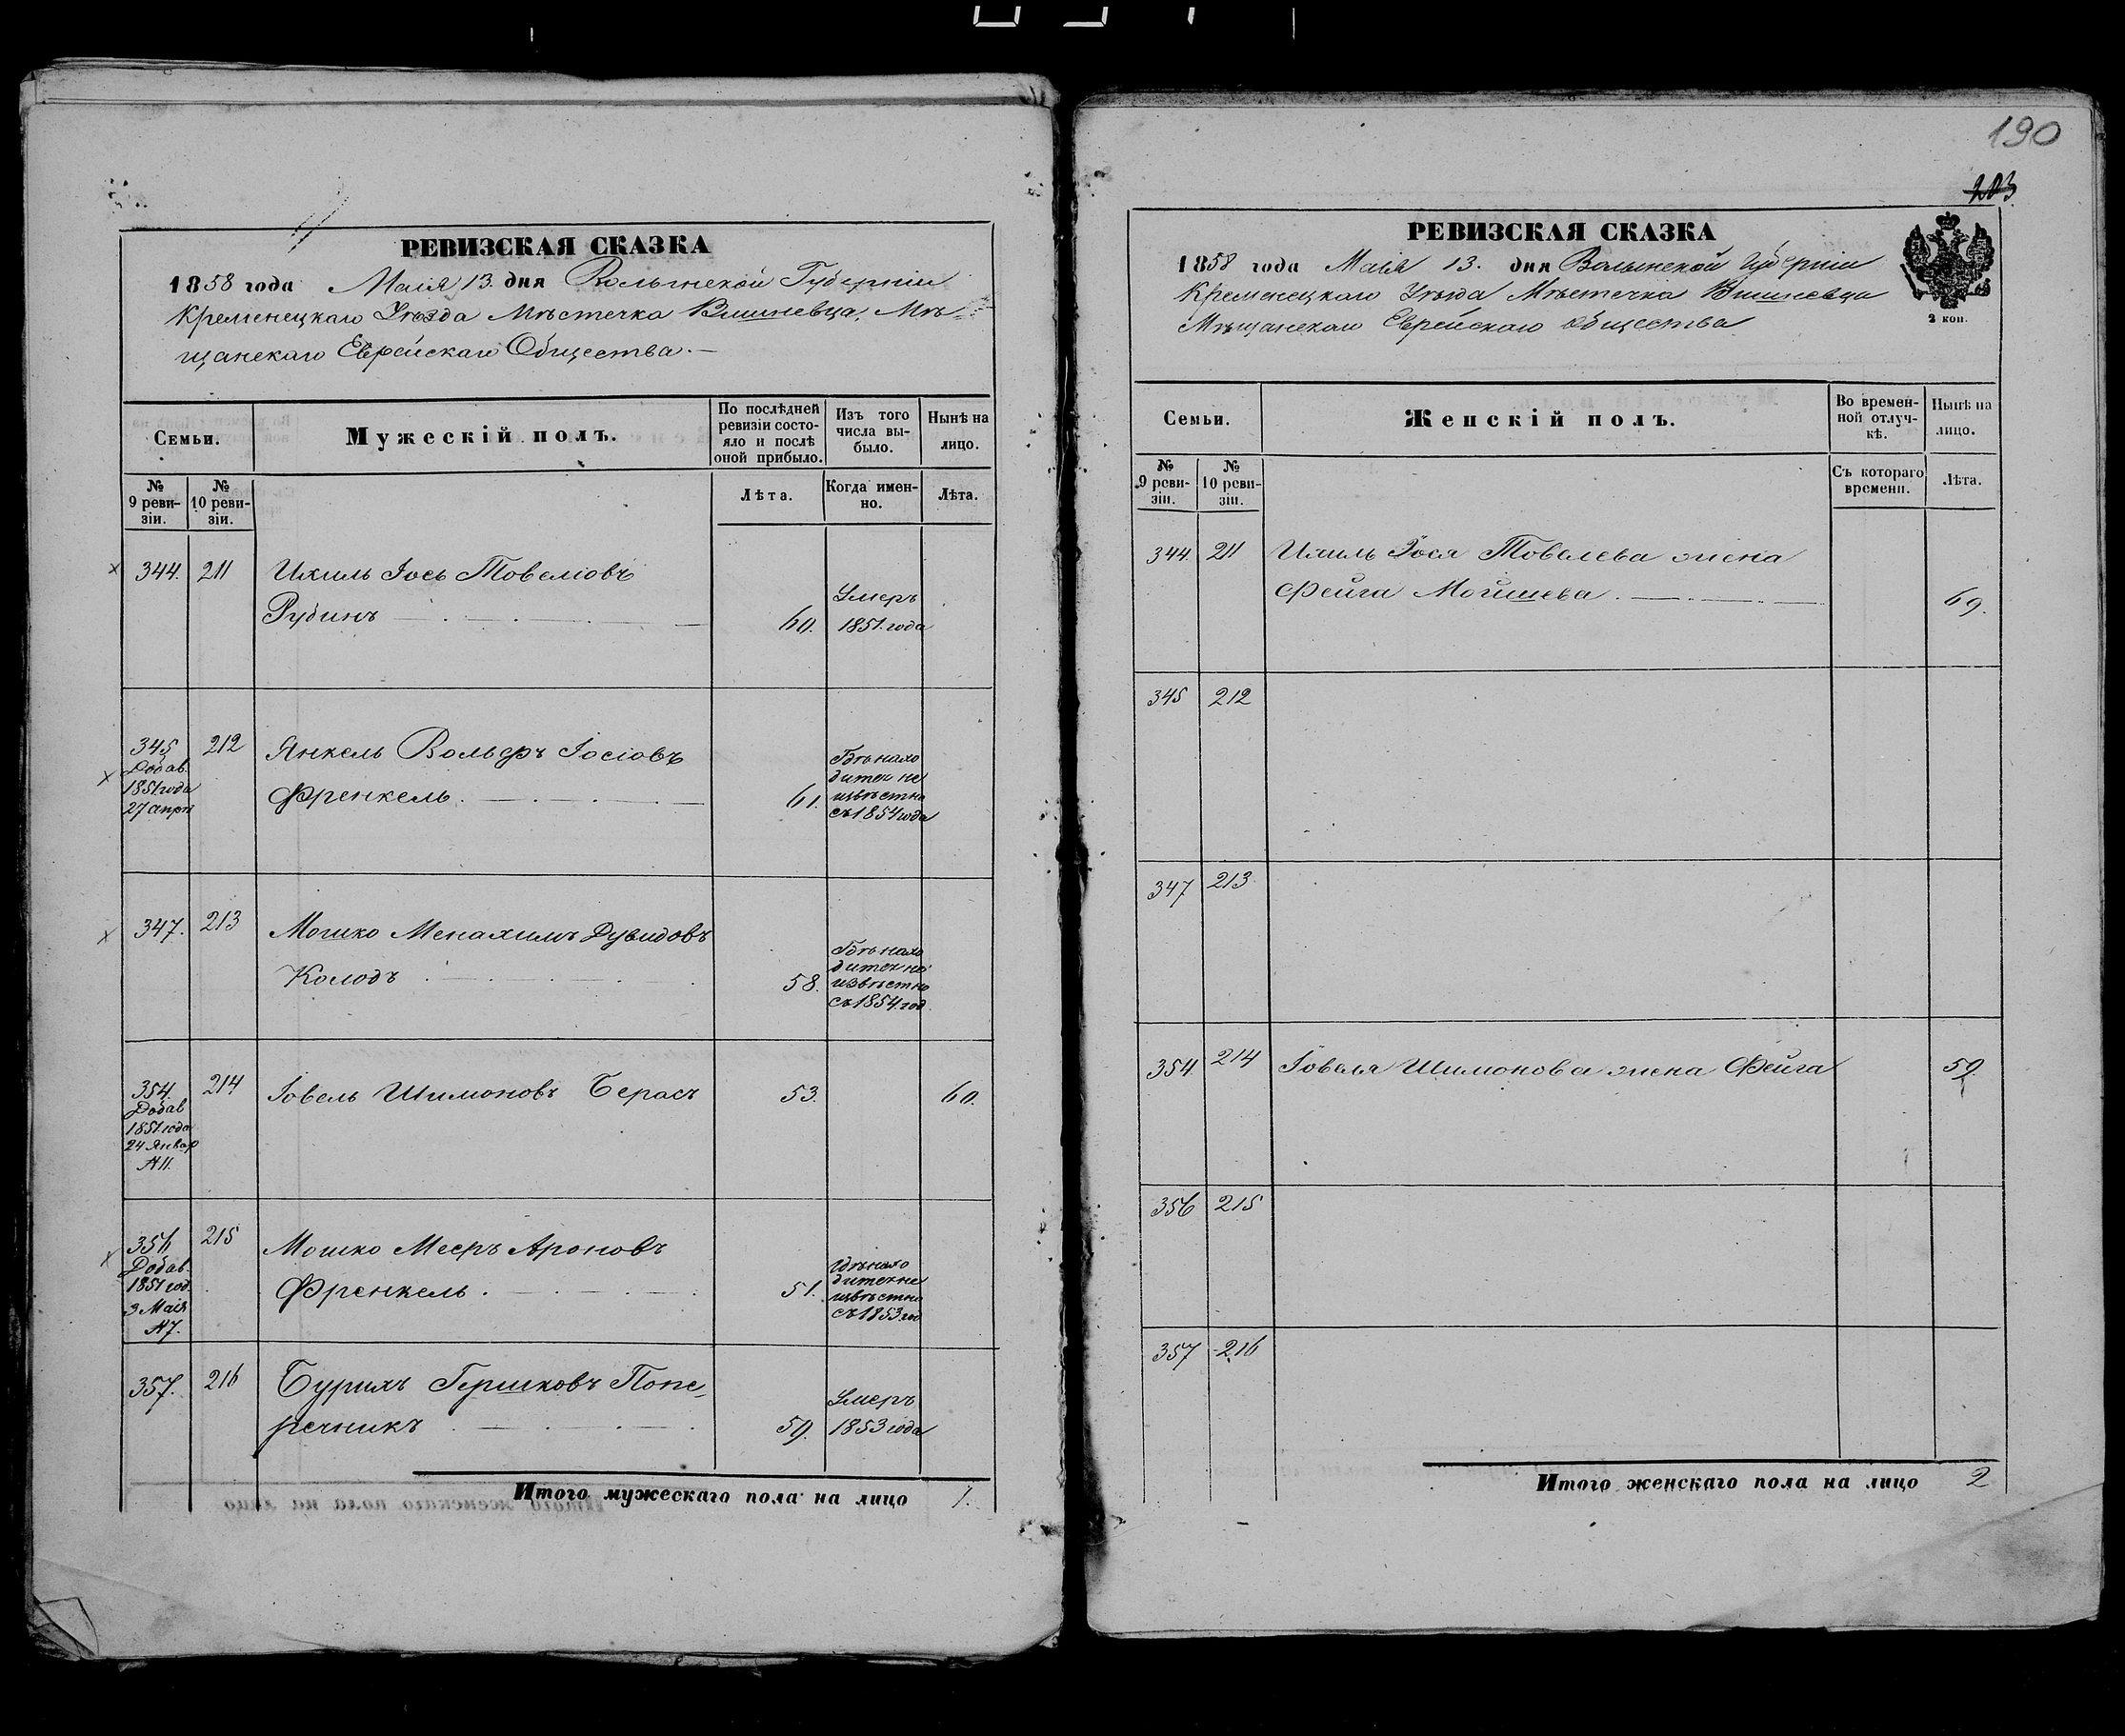 190
203
РЕВИЗСКАЯ СКАЗКА
1858 года Маія 13. дня Волынской Губерніи
Кременецкаго Уѣзда Мѣстечка Вишневца, Мѣ-
щанскаго Еврейскаго Общества.
Семьи.
Мужескій полъ.
По послѣдней ревизіи состо-яло и послѣ оной прибыло.
Изъ того числа вы-было.
Нынѣ на лицо.
№ 9 реви-зіи.
№ 10 реви-зіи.
Лѣта.
Когда имен-но.
Лѣта.
344. 211 Ихиль Іось Товеліовъ
Рубинъ 60. Умеръ 1851. года
345 Добав. 1851 года 27 Апрѣ 212 Янкель Вольфъ Іосіовъ
Френкель. 61. Гдѣ нахо дитси не извѣстно съ 1854 года
347. 213 Мошко Менахимъ Дувидовъ
Колодъ 58. Гдѣ нахо дитси не извѣстно съ 1854. год
354. Добав 1851. года 24 Январ №11. 214 Іовель Шимоновъ Берасъ 53. 60.
356 Добав. 1851 год. 3 Маія №7. 215 Мошко Мееръ Ароновъ
Френкель. 51. гдѣ нахо дитси не извѣстно съ 1853 год
357. 216 Бурихъ Гершковъ Попе-
речникъ 59. Умеръ 1853 года
Итого мужескаго пола на лицо 1.
РЕВИЗСКАЯ СКАЗКА
1858 года Маія 13. дня Волынской Губерніи
Кременецкаго Уѣзда Мѣстечка Вишневца
Мѣщанскаго Еврейскаго Общества
2 коп.
Семьи.
Женскій полъ.
Во времен-ной отлуч-кѣ.
Нынѣ на лицо.
№ 9 реви-зіи.
№ 10 реви-зіи.
Съ котораго времени.
Лѣта.
344. 211 Ихиль Іося Товелева жена
Фейга Мошиева. 69.
345 212
347 213
354 214 Іовеля Шимонова жена Фейга 59
356 215
357 216
Итого женскаго пола на лицо 2